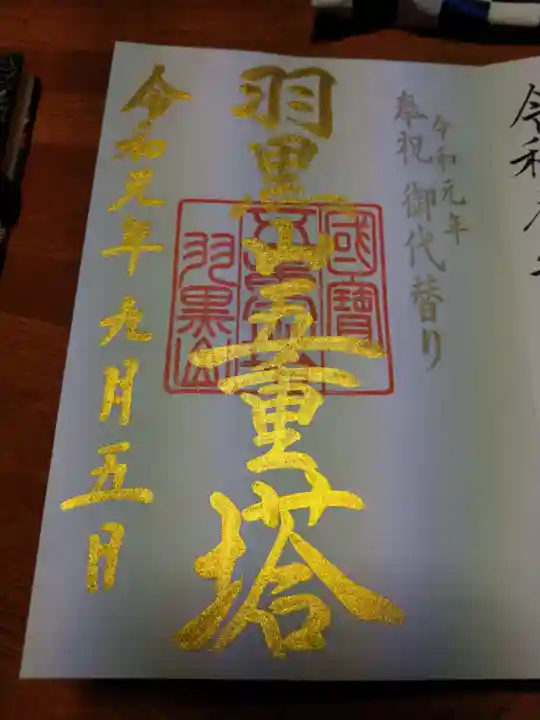 令和
令和元年
奉祝 御代替り
羽黒山五重塔
國寶
五重塔
羽黒山
令和元年九月五日